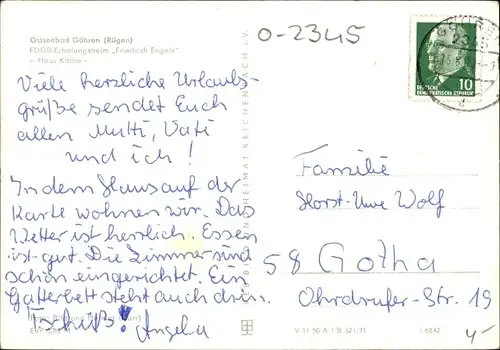 Ostseebad Göhren (Rügen)
FDGB-Erholungsheim „Friedrich Engels“
– Haus Käthe –
O-2345
Viele herzliche Urlaubs-
grüße sendet Euch
allen Mutti, Vati
und ich!
In dem Haus auf der
Karte wohnen wir. Das
Wetter ist herrlich. Essen
ist gut. Die Zimmer sind
schön eingerichtet. Ein
Gitterbett steht auch drin.
Tschüß! Angelia
BILD UND HEIMAT REICHENBACH i. V.
10
DEUTSCHE
DEMOKRATISCHE REPUBLIK
Familie
Horst-Uwe Wolf
58 Gotha
Ohrdrufer-Str. 19
V 11 50 A 1 B 321/71
1/6842
4,-